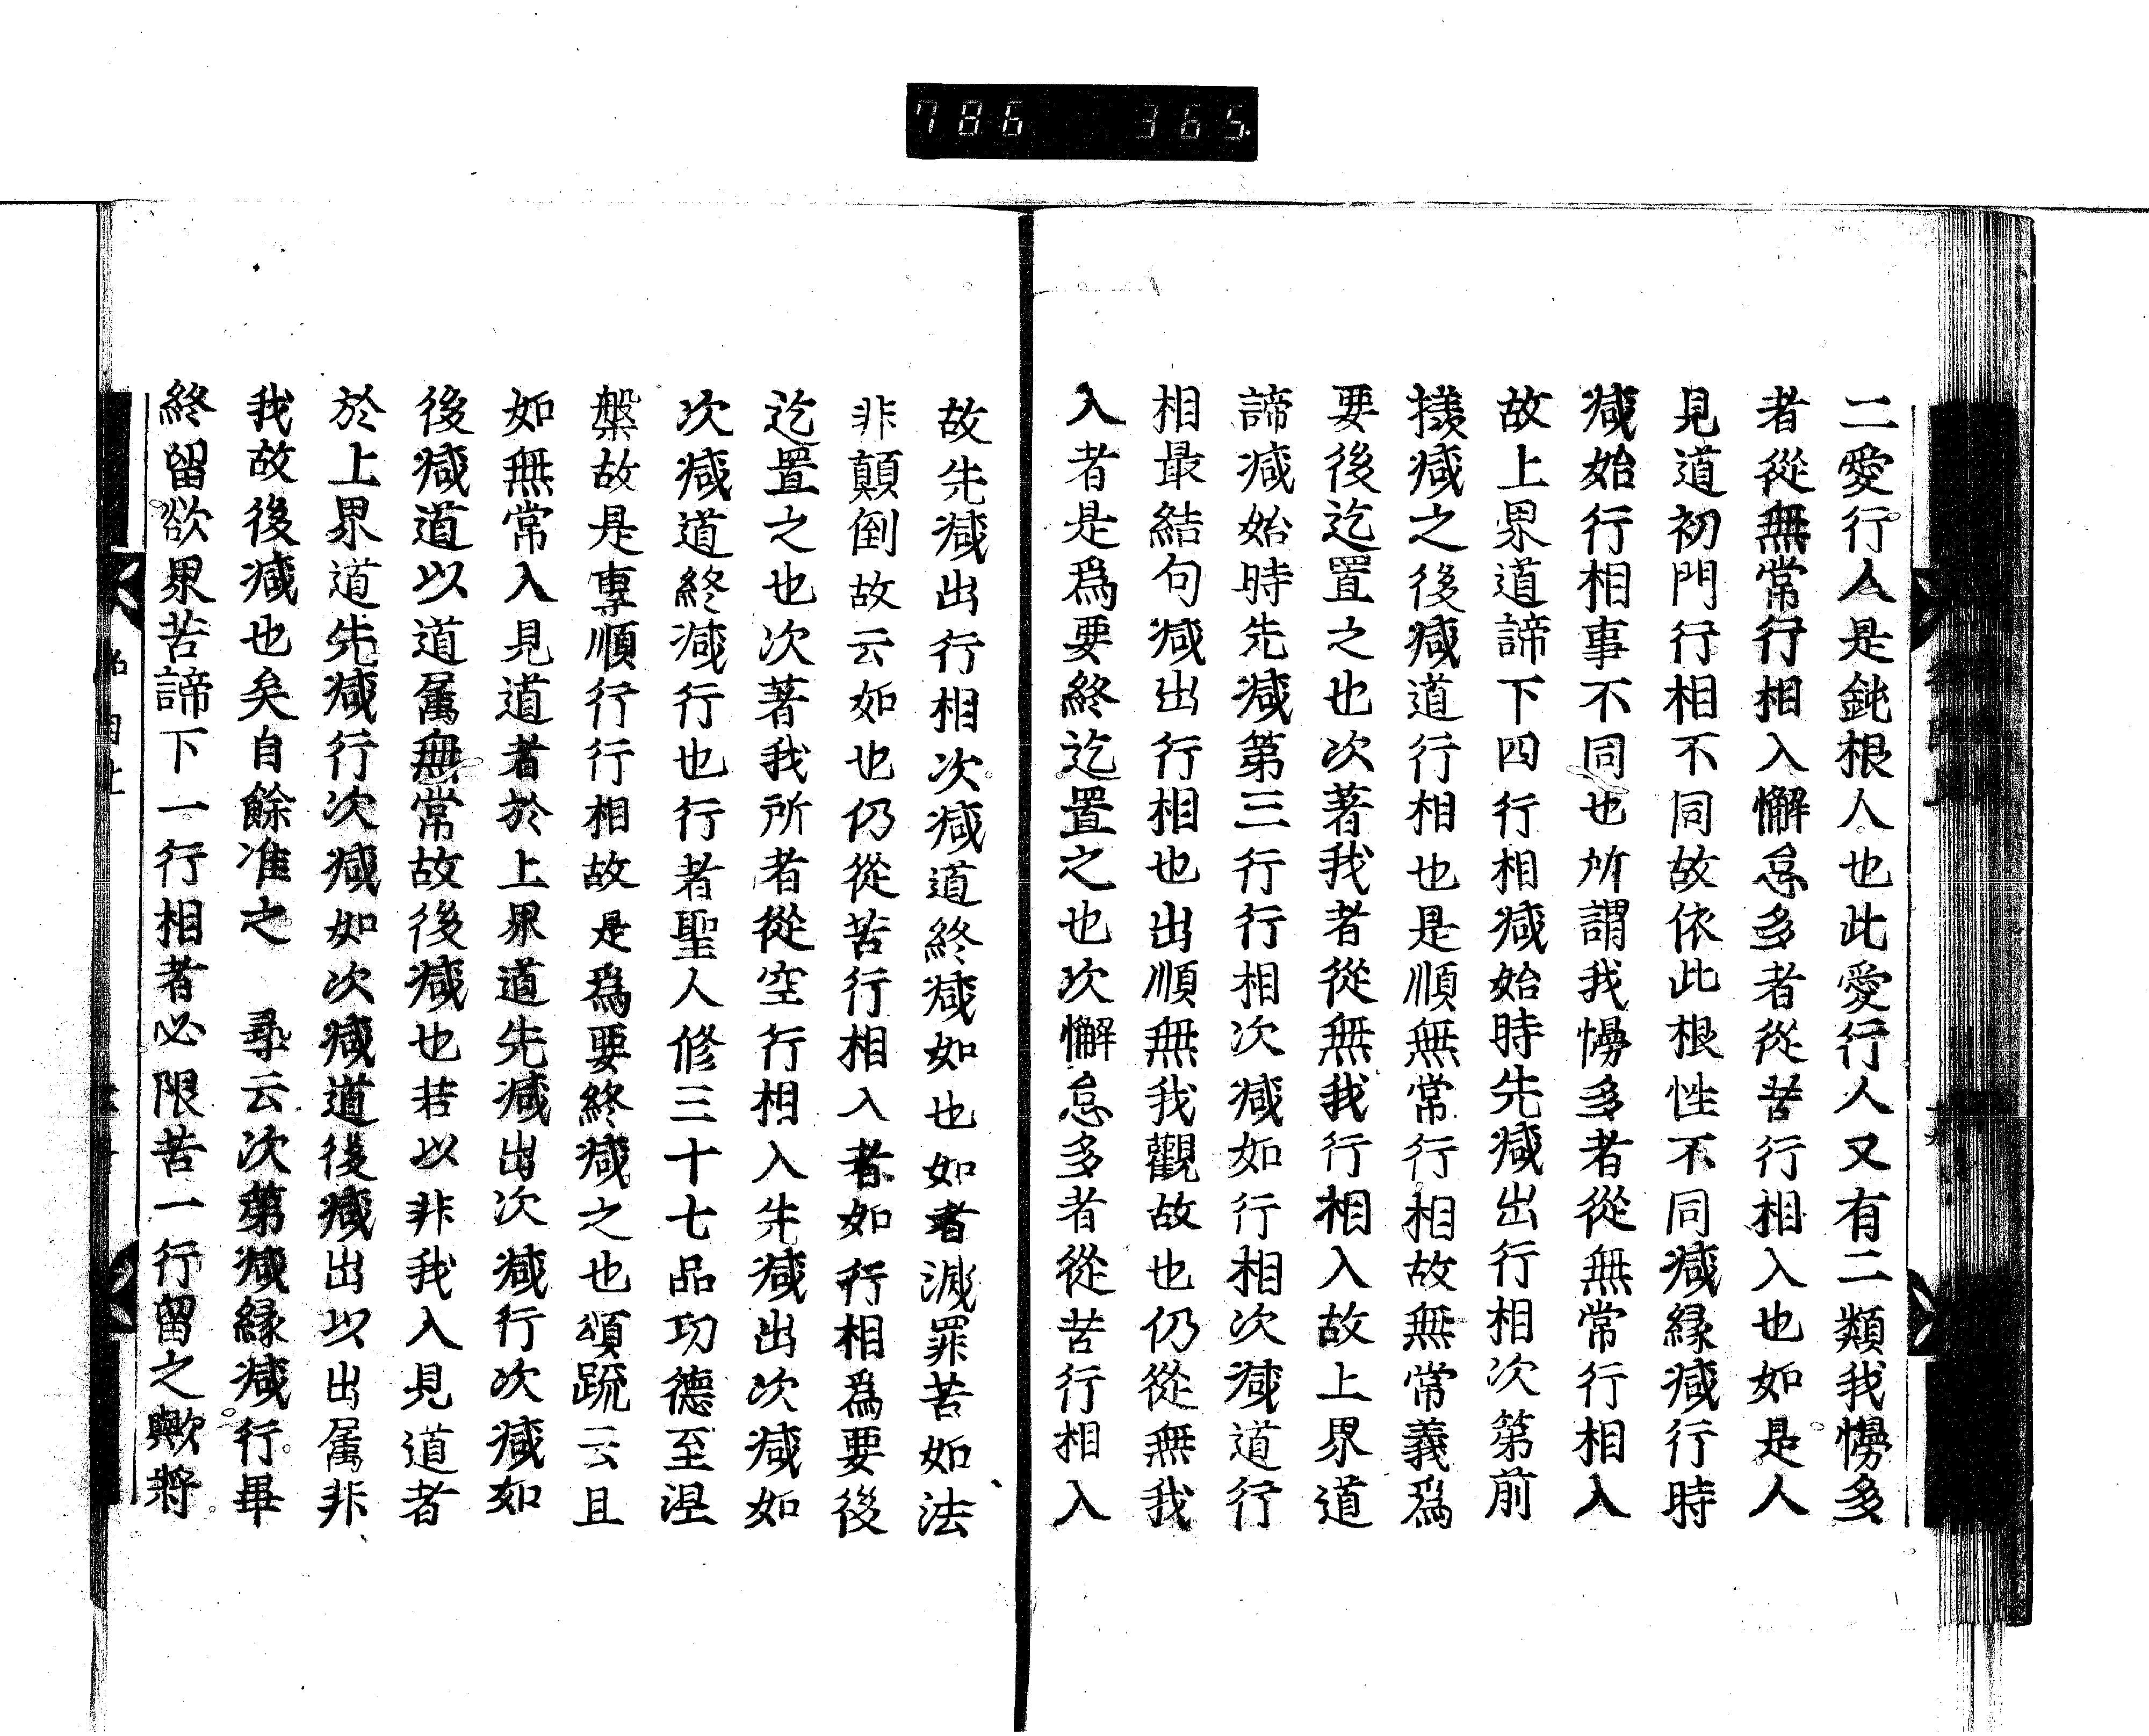 786 365
二愛行人是鈍根人也此愛行人又有二類我慢多
者從無常行相入懈怠多者從苦行相入也如是人
見道初門行相不同故依此根性不同減縁減行時
減始行相事不同也所謂我慢多者從無常行相入
故上界道諦下四行相減始時先減出行相次第前
減之後減道行相也是順無常行相故無常義爲
要後迄置之也次著我者從無我行相入故上界道
諦減始時先減第三行行相次減如行相次減道行
相最結句減出行相也出順無我觀故也仍從無我
入者是爲要終迄置之也次懈怠多者從苦行相入
故先減出行相次減道終減如也如者滅罪苦如法
非顛倒故云如也仍從苦行相入者如行相爲要後
迄置之也次著我所者從空行相入先減出次減如
次減道終減行也行者聖人修三十七品功德至涅
槃故是專順行行相故是爲要終減之也頌䟽云且
如無常入見道者於上界道先減出次減行次減如
後減道以道属無常故後減也若以非我入見道者
於上界道先減行次減如次減道後減出以出属非
我故後減也矣自餘准之　尋云次第減縁減行畢
終留欲界苦諦下一行相者必限苦一行留之歟將